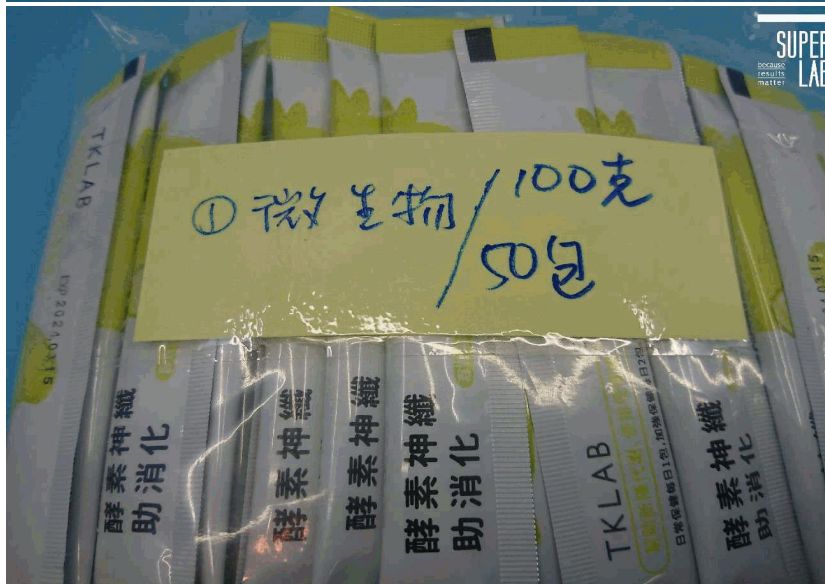 SUPER
LAB
because
results
matter
TKLAB
① 微生物/100克
50包
Exp 20210315
酵素神纖
助消化
酵素神纖
酵素神纖
酵素神纖
助消化
TKLAB
日常保養每日1包,加強保養每日2包
酵素神纖
助消化